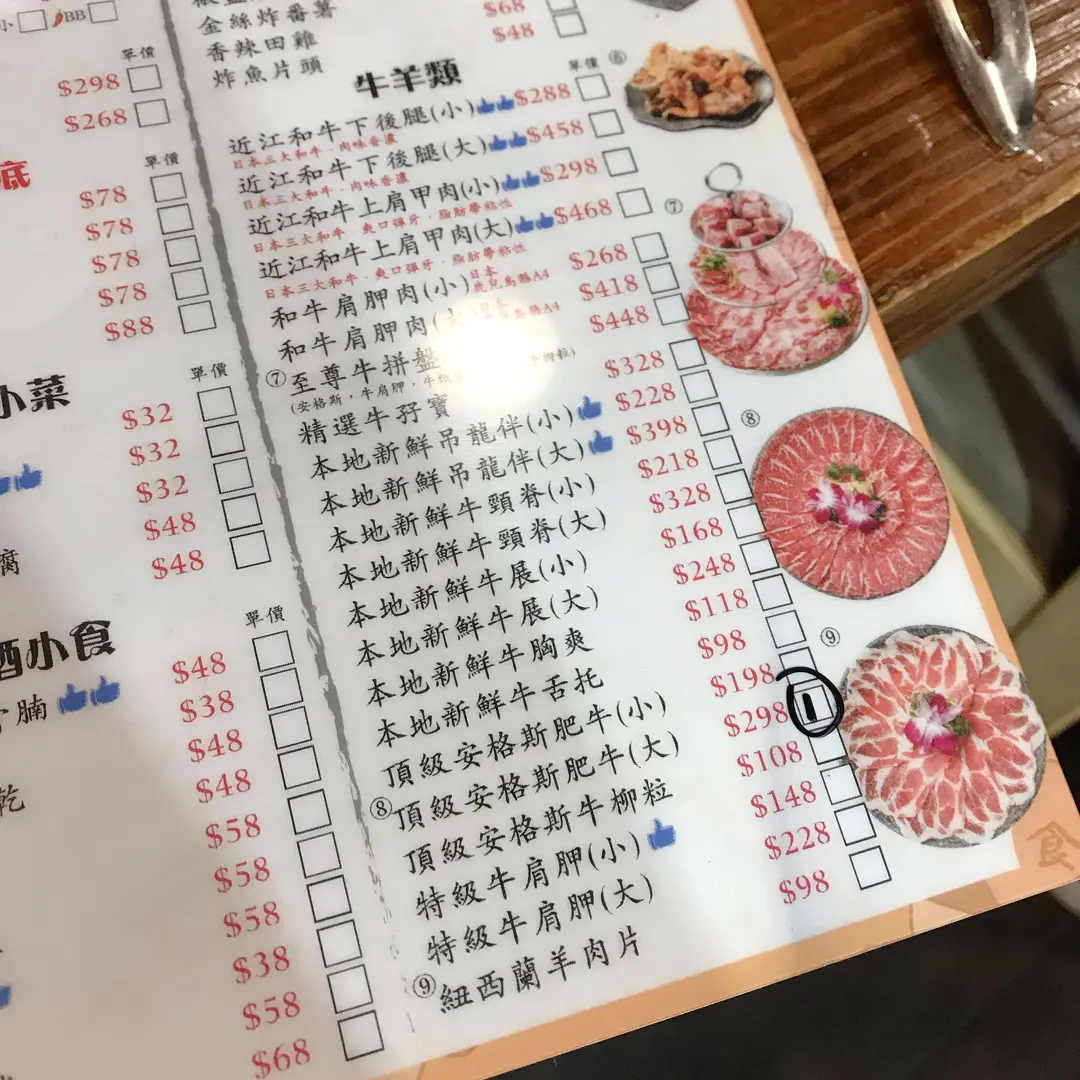 小 BB
金絲炸番薯 $68
香辣田雞 $48
炸魚片頭
單價
$298
$268
底 單價
$78
$78
$78
$78
$88
小菜 單價
$32
$32
$32
$48
腐 $48
酒小食 單價
$48
腩 $38
$48
$48
乾 $58
$58
$58
$38
$58
$68
牛羊類 單價 ⑥
近江和牛下後腿(小) $288
日本三大和牛．肉味香濃
近江和牛下後腿(大) $458
日本三大和牛．肉味香濃
近江和牛上肩甲肉(小) $298
日本三大和牛．爽口彈牙．脂肪帶粘性
近江和牛上肩甲肉(大) $468 ⑦
日本三大和牛．爽口彈牙．脂肪帶粘性
和牛肩胛肉(小) 日本鹿兒島縣A4 $268
和牛肩胛肉(大 縣A4 $418
⑦至尊牛拼盤 $448
(安格斯，牛肩胛，牛 粒)
精選牛孖寶 $328
本地新鮮吊龍伴(小) $228
本地新鮮吊龍伴(大) $398 ⑧
本地新鮮牛頸脊(小) $218
本地新鮮牛頸脊(大) $328
本地新鮮牛展(小) $168
本地新鮮牛展(大) $248
本地新鮮牛胸爽 $118
本地新鮮牛舌托 $98 ⑨
頂級安格斯肥牛(小) $198
⑧頂級安格斯肥牛(大) $298 1
頂級安格斯牛柳粒 $108
特級牛肩胛(小) $148
特級牛肩胛(大) $228
⑨紐西蘭羊肉片 $98
食